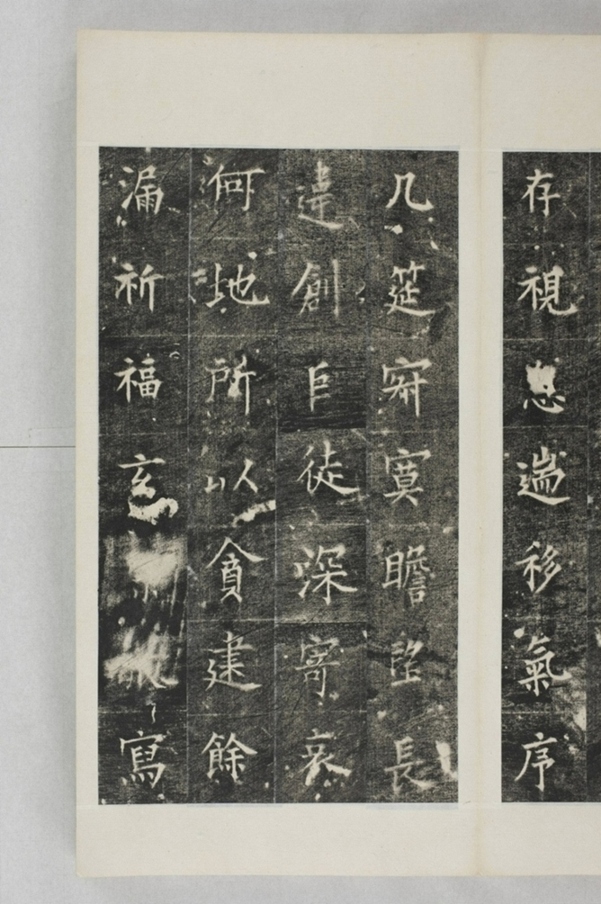 存視息遄移氣序
几筵寂寞瞻望長
違創巨徒深寄哀
何地所以貪建餘
漏祈福玄寫